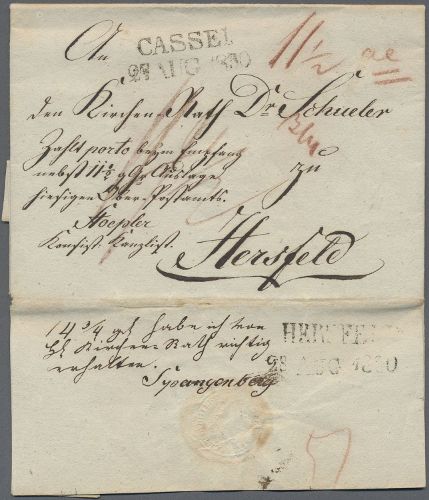 An
CASSEL
27 AUG 1830
11 1/2
den Kirchen-Rath Dr Schueler
Zahlt porto beym Empfang
nebst 11 1/2 gGr Auslage
hiesigen Ober-Postamts.
zu
Hoepler
Konsist. Kanzlist.
Hersfeld
14 3/4 gGr habe ich von
Kirchen-Rath richtig
erhalten.
Spangenberg
HERSFELD
28 AUG 1830